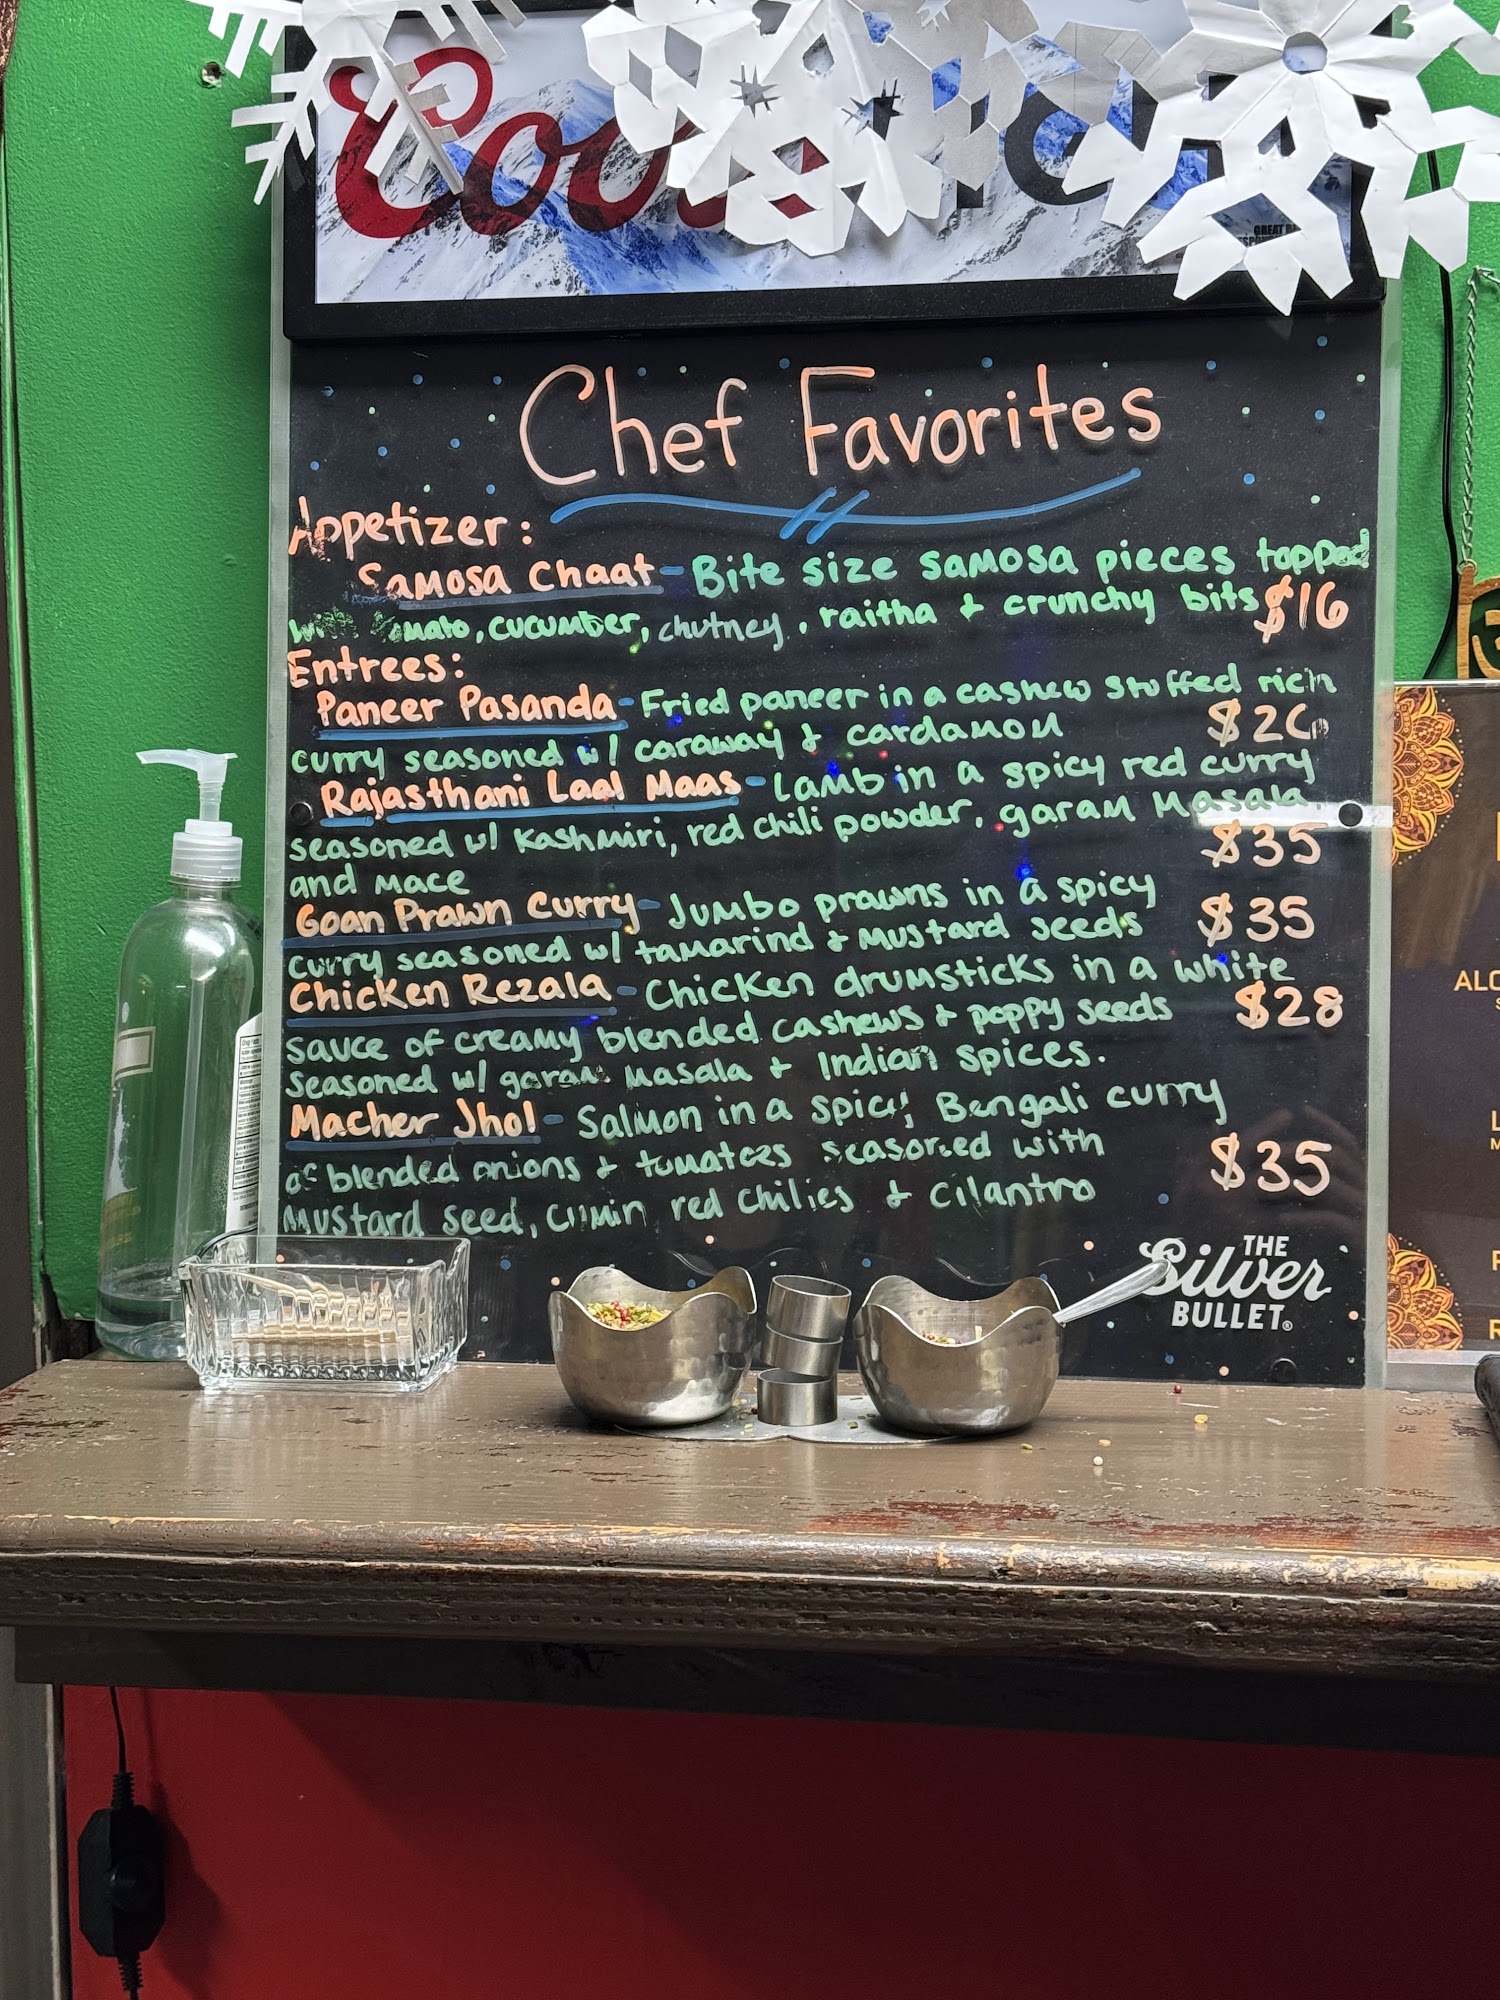 Coo
GREAT
Chef Favorites
Appetizer:
Samosa Chaat - Bite size samosa pieces topped
tomato, cucumber, chutney, raitha & crunchy bits $16
Entrees:
Paneer Pasanda - Fried paneer in a cashew stuffed rich
curry seasoned w/ caraway & cardamom
Rajasthani Laal Maas - Lamb in a spicy red curry
seasoned w/ Kashmiri, red chili powder, garam masala
and mace $35
Goan Prawn Curry - Jumbo prawns in a spicy
curry seasoned w/ tamarind & mustard seeds $35
Chicken Rezala - Chicken drumsticks in a white
sauce of creamy blended cashews & poppy seeds $28
seasoned w/ garam masala & Indian spices.
Macher Jhol - Salmon in a spicy Bengali curry
of blended onions & tomatoes seasoned with $35
mustard seed, cumin red chilies & cilantro
THE
Silver
BULLET®
ALC